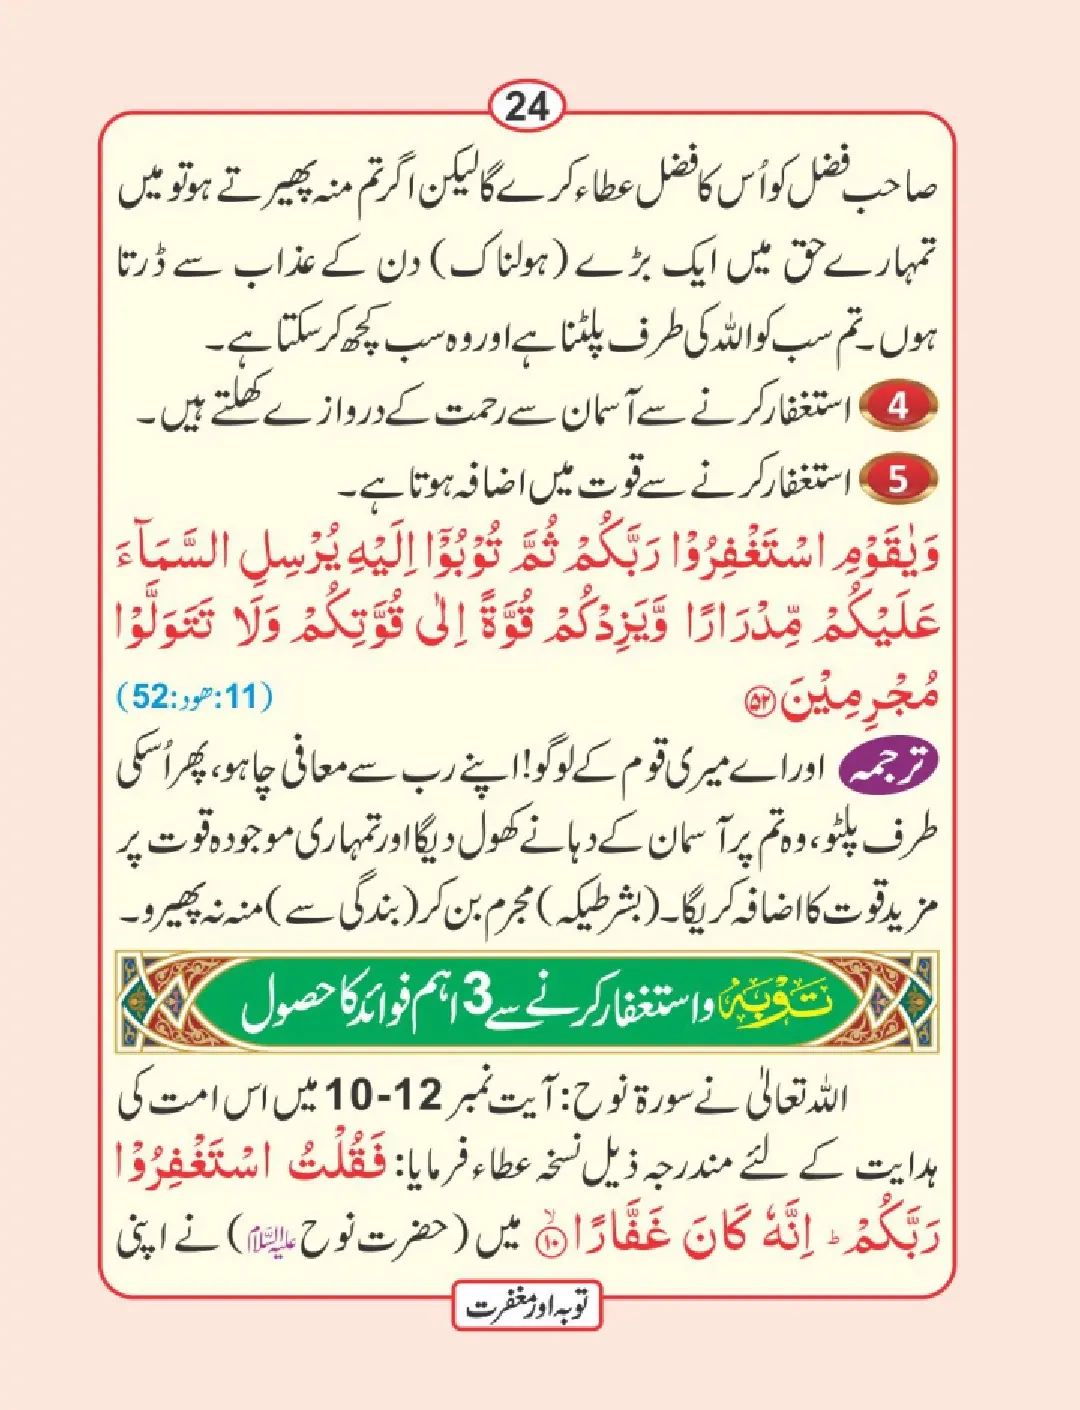 24
صاحب فضل کو اُس کا فضل عطاء کرے گا لیکن اگر تم منہ پھیرتے ہو تو میں
تمہارے حق میں ایک بڑے (ہولناک) دن کے عذاب سے ڈرتا
ہوں۔ تم سب کو اللہ کی طرف پلٹنا ہے اور وہ سب کچھ کر سکتا ہے۔
4 استغفار کرنے سے آسمان سے رحمت کے دروازے کھلتے ہیں۔
5 استغفار کرنے سے قوت میں اضافہ ہوتا ہے۔
وَيٰقَوْمِ اسْتَغْفِرُوْا رَبَّكُمْ ثُمَّ تُوْبُوْٓا اِلَيْهِ يُرْسِلِ السَّمَآءَ
عَلَيْكُمْ مِّدْرَارًا وَّيَزِدْكُمْ قُوَّةً اِلٰى قُوَّتِكُمْ وَلَا تَتَوَلَّوْا
مُجْرِمِيْنَ ﴿۵۲﴾ (11:ھود:52)
ترجمہ اور اے میری قوم کے لوگو! اپنے رب سے معافی چاہو، پھر اُسکی
طرف پلٹو، وہ تم پر آسمان کے دہانے کھول دیگا اور تمہاری موجودہ قوت پر
مزید قوت کا اضافہ کریگا۔ (بشرطیکہ) مجرم بن کر (بندگی سے) منہ نہ پھیرو۔
توبہ و استغفار کرنے سے 3 اہم فوائد کا حصول
اللہ تعالیٰ نے سورۃ نوح: آیت نمبر 12-10 میں اس امت کی
ہدایت کے لئے مندرجہ ذیل نسخہ عطاء فرمایا: فَقُلْتُ اسْتَغْفِرُوْا
رَبَّكُمْ ؕ اِنَّهٗ كَانَ غَفَّارًا ﴿۱۰﴾ۙ میں (حضرت نوح علیہ السلام) نے اپنی
توبہ اور مغفرت